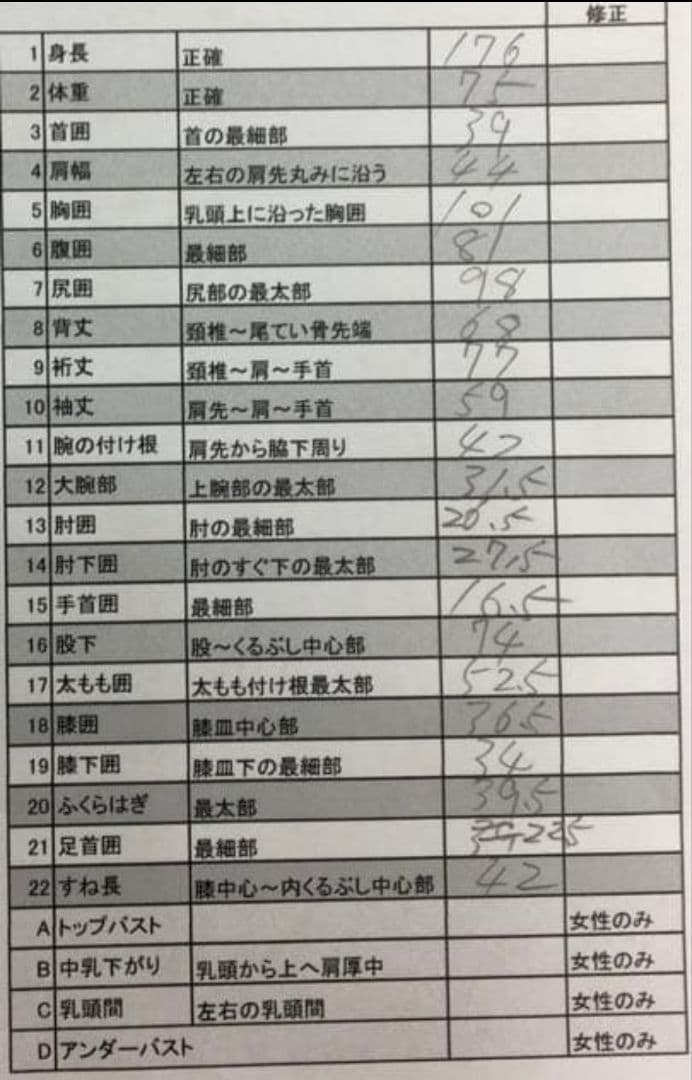 修正
1 身長 正確 176
2 体重 正確 75
3 首囲 首の最細部 39
4 肩幅 左右の肩先丸みに沿う 44
5 胸囲 乳頭上に沿った胸囲 101
6 腹囲 最細部 81
7 尻囲 尻部の最太部 98
8 背丈 頚椎～尾てい骨先端 68
9 裄丈 頚椎～肩～手首 77
10 袖丈 肩先～肩～手首 59
11 腕の付け根 肩先から脇下周り 42
12 大腕部 上腕部の最太部 31.5
13 肘囲 肘の最細部 20.5
14 肘下囲 肘のすぐ下の最太部 27.5
15 手首囲 最細部 16.5
16 股下 股～くるぶし中心部 74
17 太もも囲 太もも付け根最太部 52.5
18 膝囲 膝皿中心部 36.5
19 膝下囲 膝皿下の最細部 34
20 ふくらはぎ 最太部 39.5
21 足首囲 最細部 22.5
22 すね長 膝中心～内くるぶし中心部 42
A トップバスト 女性のみ
B 中乳下がり 乳頭から上へ肩厚中 女性のみ
C 乳頭間 左右の乳頭間 女性のみ
D アンダーバスト 女性のみ